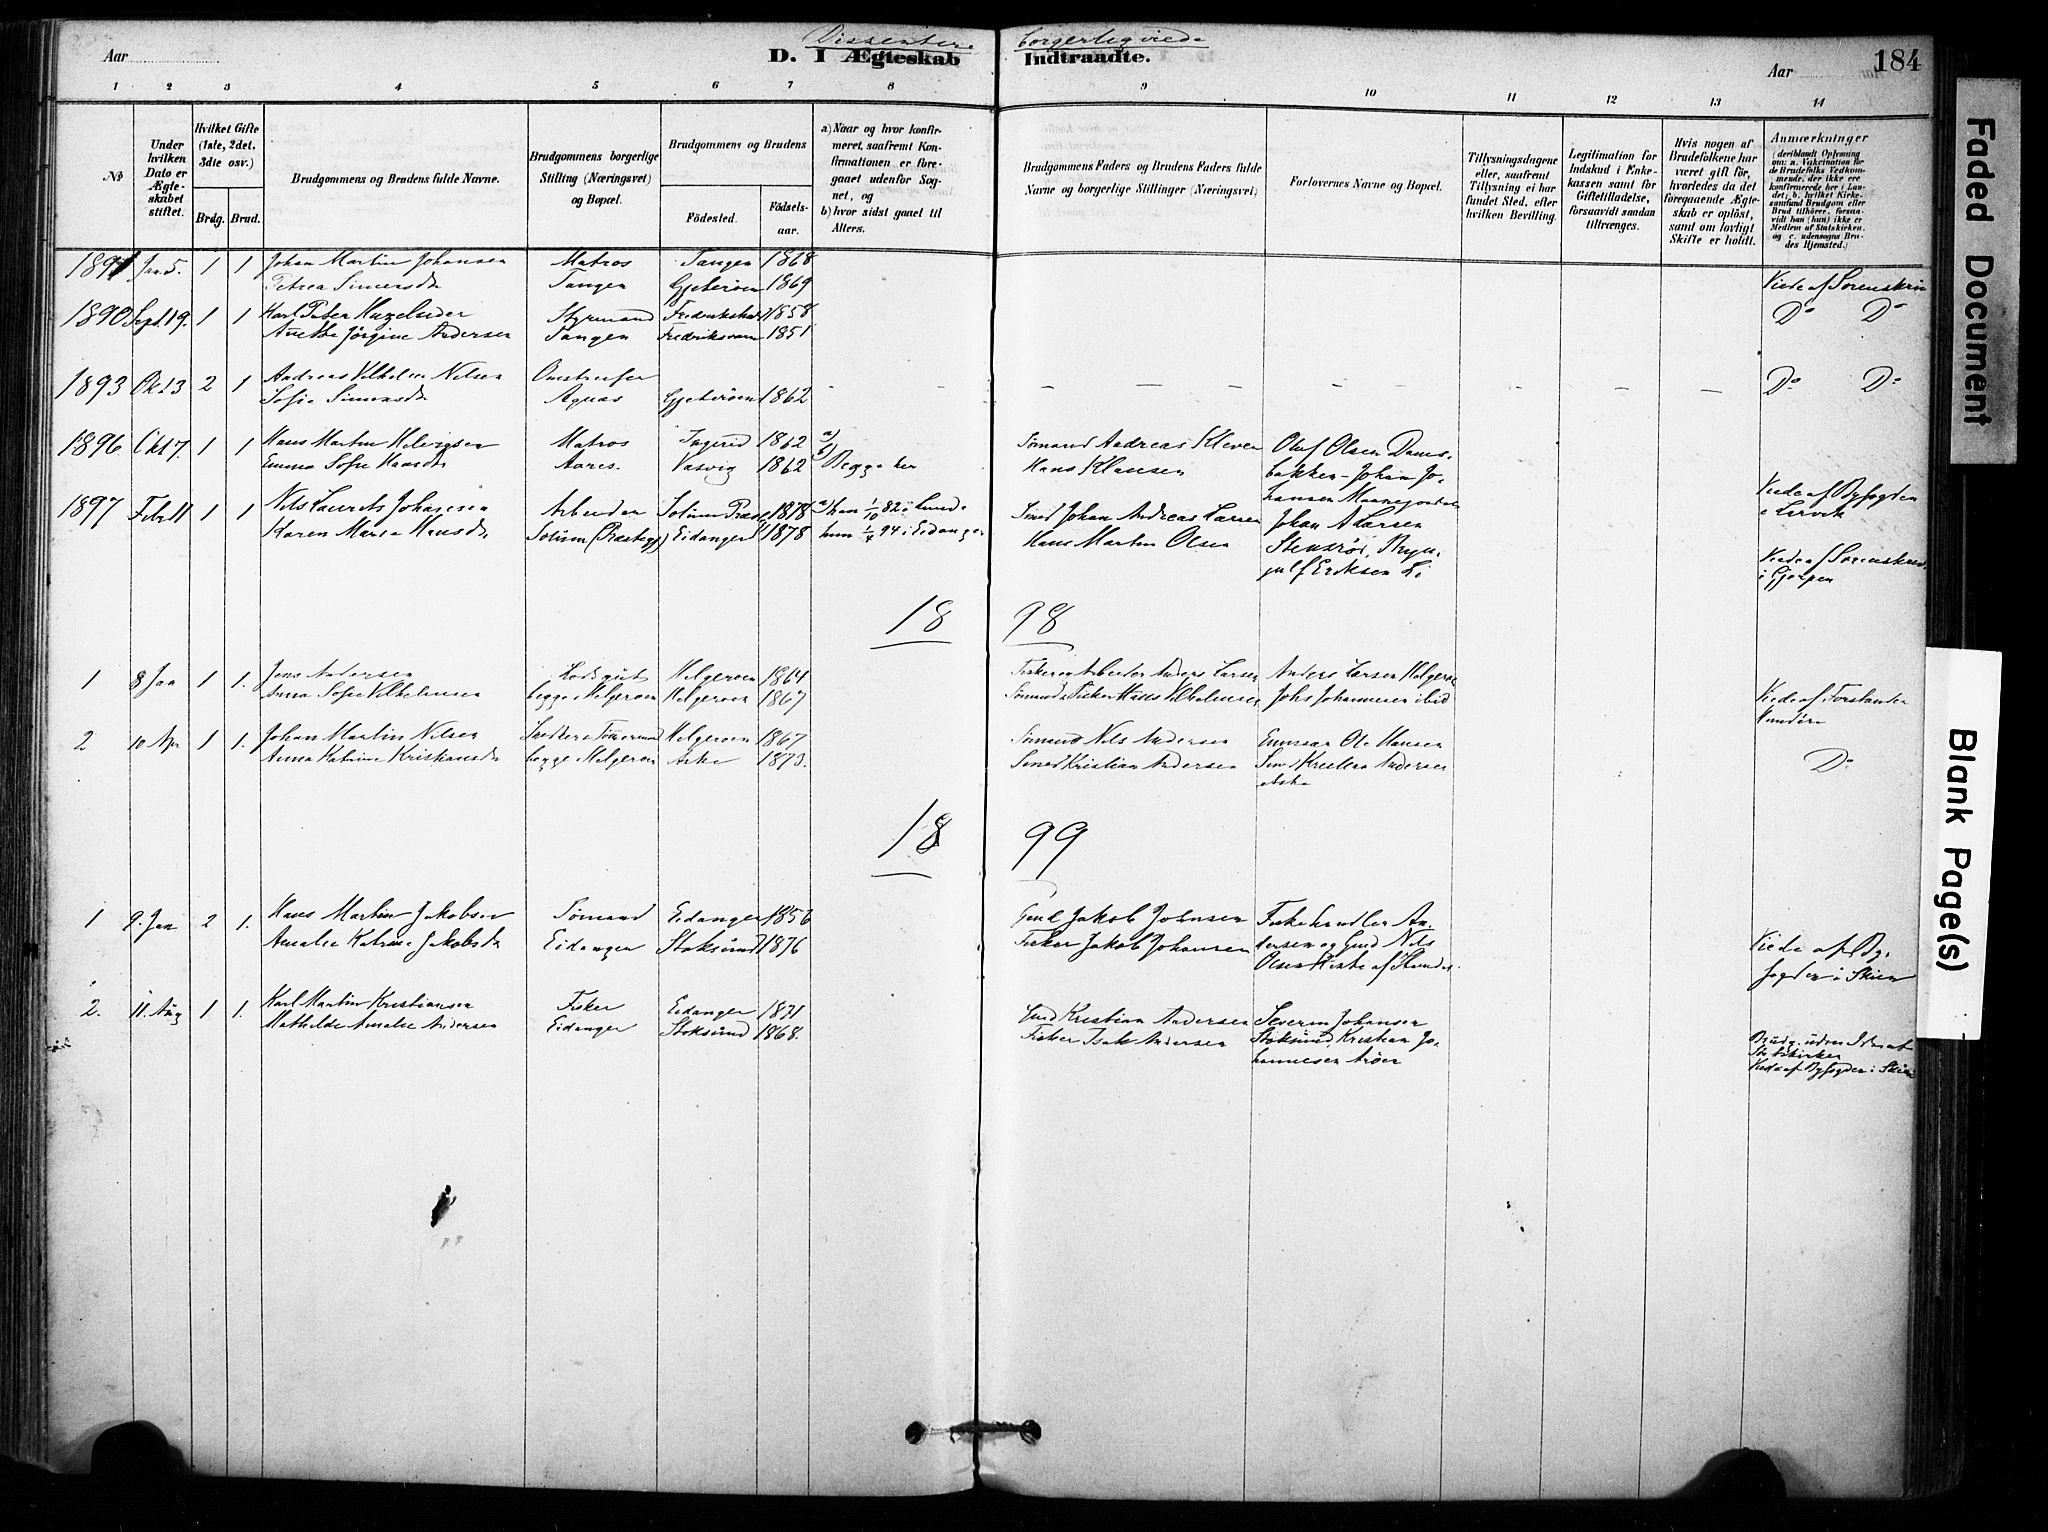 Dissentere borgerlig viede
Aar D. I Ægteskab Indtraadte. Aar 184
1 2 3 4 5 6 7 8 9 10 11 12 13 14
No
Under hvilken Dato er Ægteskabet stiftet.
Hvilket Gifte (1ste, 2det, 3die osv.)
Brdg. Brud.
Brudgommens og Brudens fulde Navne.
Brudgommens borgerlige Stilling (Næringsvei) og Bopæl.
Brudgommens og Brudens
Födested. Födselsaar.
a) Naar og hvor konfirmeret, saafremt Konfirmationen er foregaaet udenfor Sognet, og
b) hvor sidst gaaet til Alters.
Brudgommens Faders og Brudens Faders fulde Navne og borgerlige Stillinger (Næringsvei)
Forlovernes Navne og Bopæl.
Tillysningsdagene eller, saafremt Tillysning ei har fundet Sted, efter hvilken Bevilling.
Legitimation for Indskud i Enkekassen samt for Giftetilladelse, forsaavidt saadan tiltrænges.
Hvis nogen af Brudefolkene har været gift för, hvorledes da det foregaaende Ægteskab er oplöst, samt om lovligt Skifte er holdt.
Anmærkninger
(deriblandt Oplysning om: a. Vakcination for de Brudefolks Vedkommende, der ikke ere konfirmerede her i Landet; b. hvilket Kirkesamfund Brudgom eller Brud tilhörer, forsaavidt han (hun) ikke er Medlem af Statskirken, og c. udensogns Brudes Hjemsted.)
1891 Jan 5. 1 1 Johan Martin Johansen Matros Tangen 1868
Petrea Simensdr Tangen Gjeterøen 1869 Viede af Sorenskriv
1890 Sept 19. 1 1 Karl Peter Styrmand Fredrikshald 1858 Do Do
Anette Jörgine Andersen Tangen Fredriksværn 1851
1893 Okt 3 2 1 Andreas Vilhelm Nilsen
Sofie Simensdr Agnæs Gjeterøen 1862 Do Do
1896 Okt 7. 1 1 Hans Martin Helvigsen Matros 1862 a) Sømand Andreas Kleven Oluf Olsen Dams-
Emma Sofie Hansdr Aares. Vasvig 1862 b) Begge her Hans Klausen bakken - Johan Jo-
hansen
Viede af Byfogden i Larvik
1897 Febr 11 1 1 Nils Laurits Johansen Arbeider Solum 1878 a) han 1/10 82 i Lunde Johan Andreas Larsen Johan A Larsen
Karen Marie Hansdr Solum Eidanger 1878 hun 1/4 94 i Eidanger Hans Martin Olsen Stensrøi, Bryn-
julf Eriksen Li
Viede af Sorenskriv. i Gjerpen
18 98
1 8 Jan 1 1. Jens Andersen Lodsgut Helgeroen 1864 Fisker og Arbeider Anders Larsen Anders Larsen Helgeroen
Anna Sofie Vilhelmsen begge Helgeroen Helgeroen 1867 Sømand & Fisker Hans Vilhelmsen Johs Johannesen ibid
Viede af Forstander
2 10 Apr 1 1. Johan Martin Nilsen Helgeroen 1867 Sømand Nils Andersen Ole Hansen
Anna Katrine Kristiansdr begge Helgeroen Aske 1873. Smed Kristian Andersen Smed Kristian Andersen
Aske
Do
18 99
1 9. Jan 2 1. Hans Martin Jakobsen Sømand Eidanger 1856 Gmd Jakob Johnsen Fiskehandler An-
Amalie Katrine Jakobsdr Eidanger Stoksund 1876 Fisker Jakob Johansen dersen og Gmd Nils
Olsen
Viede af By-
fogden i Skien
2. 11. Aug 1 1. Karl Martin Kristiansen Fisker Eidanger 1871 Gmd Kristian Andersen Severin Johansen
Mathilde Amalie Andersen Eidanger Stoksund 1868. Fisker Isak Andersen Stoksund, Kristian Jo-
hannesen Arøen
Brudg. uden for
Statskirken
Viede af Byfogden i Skien
Faded Document
Blank Page(s)